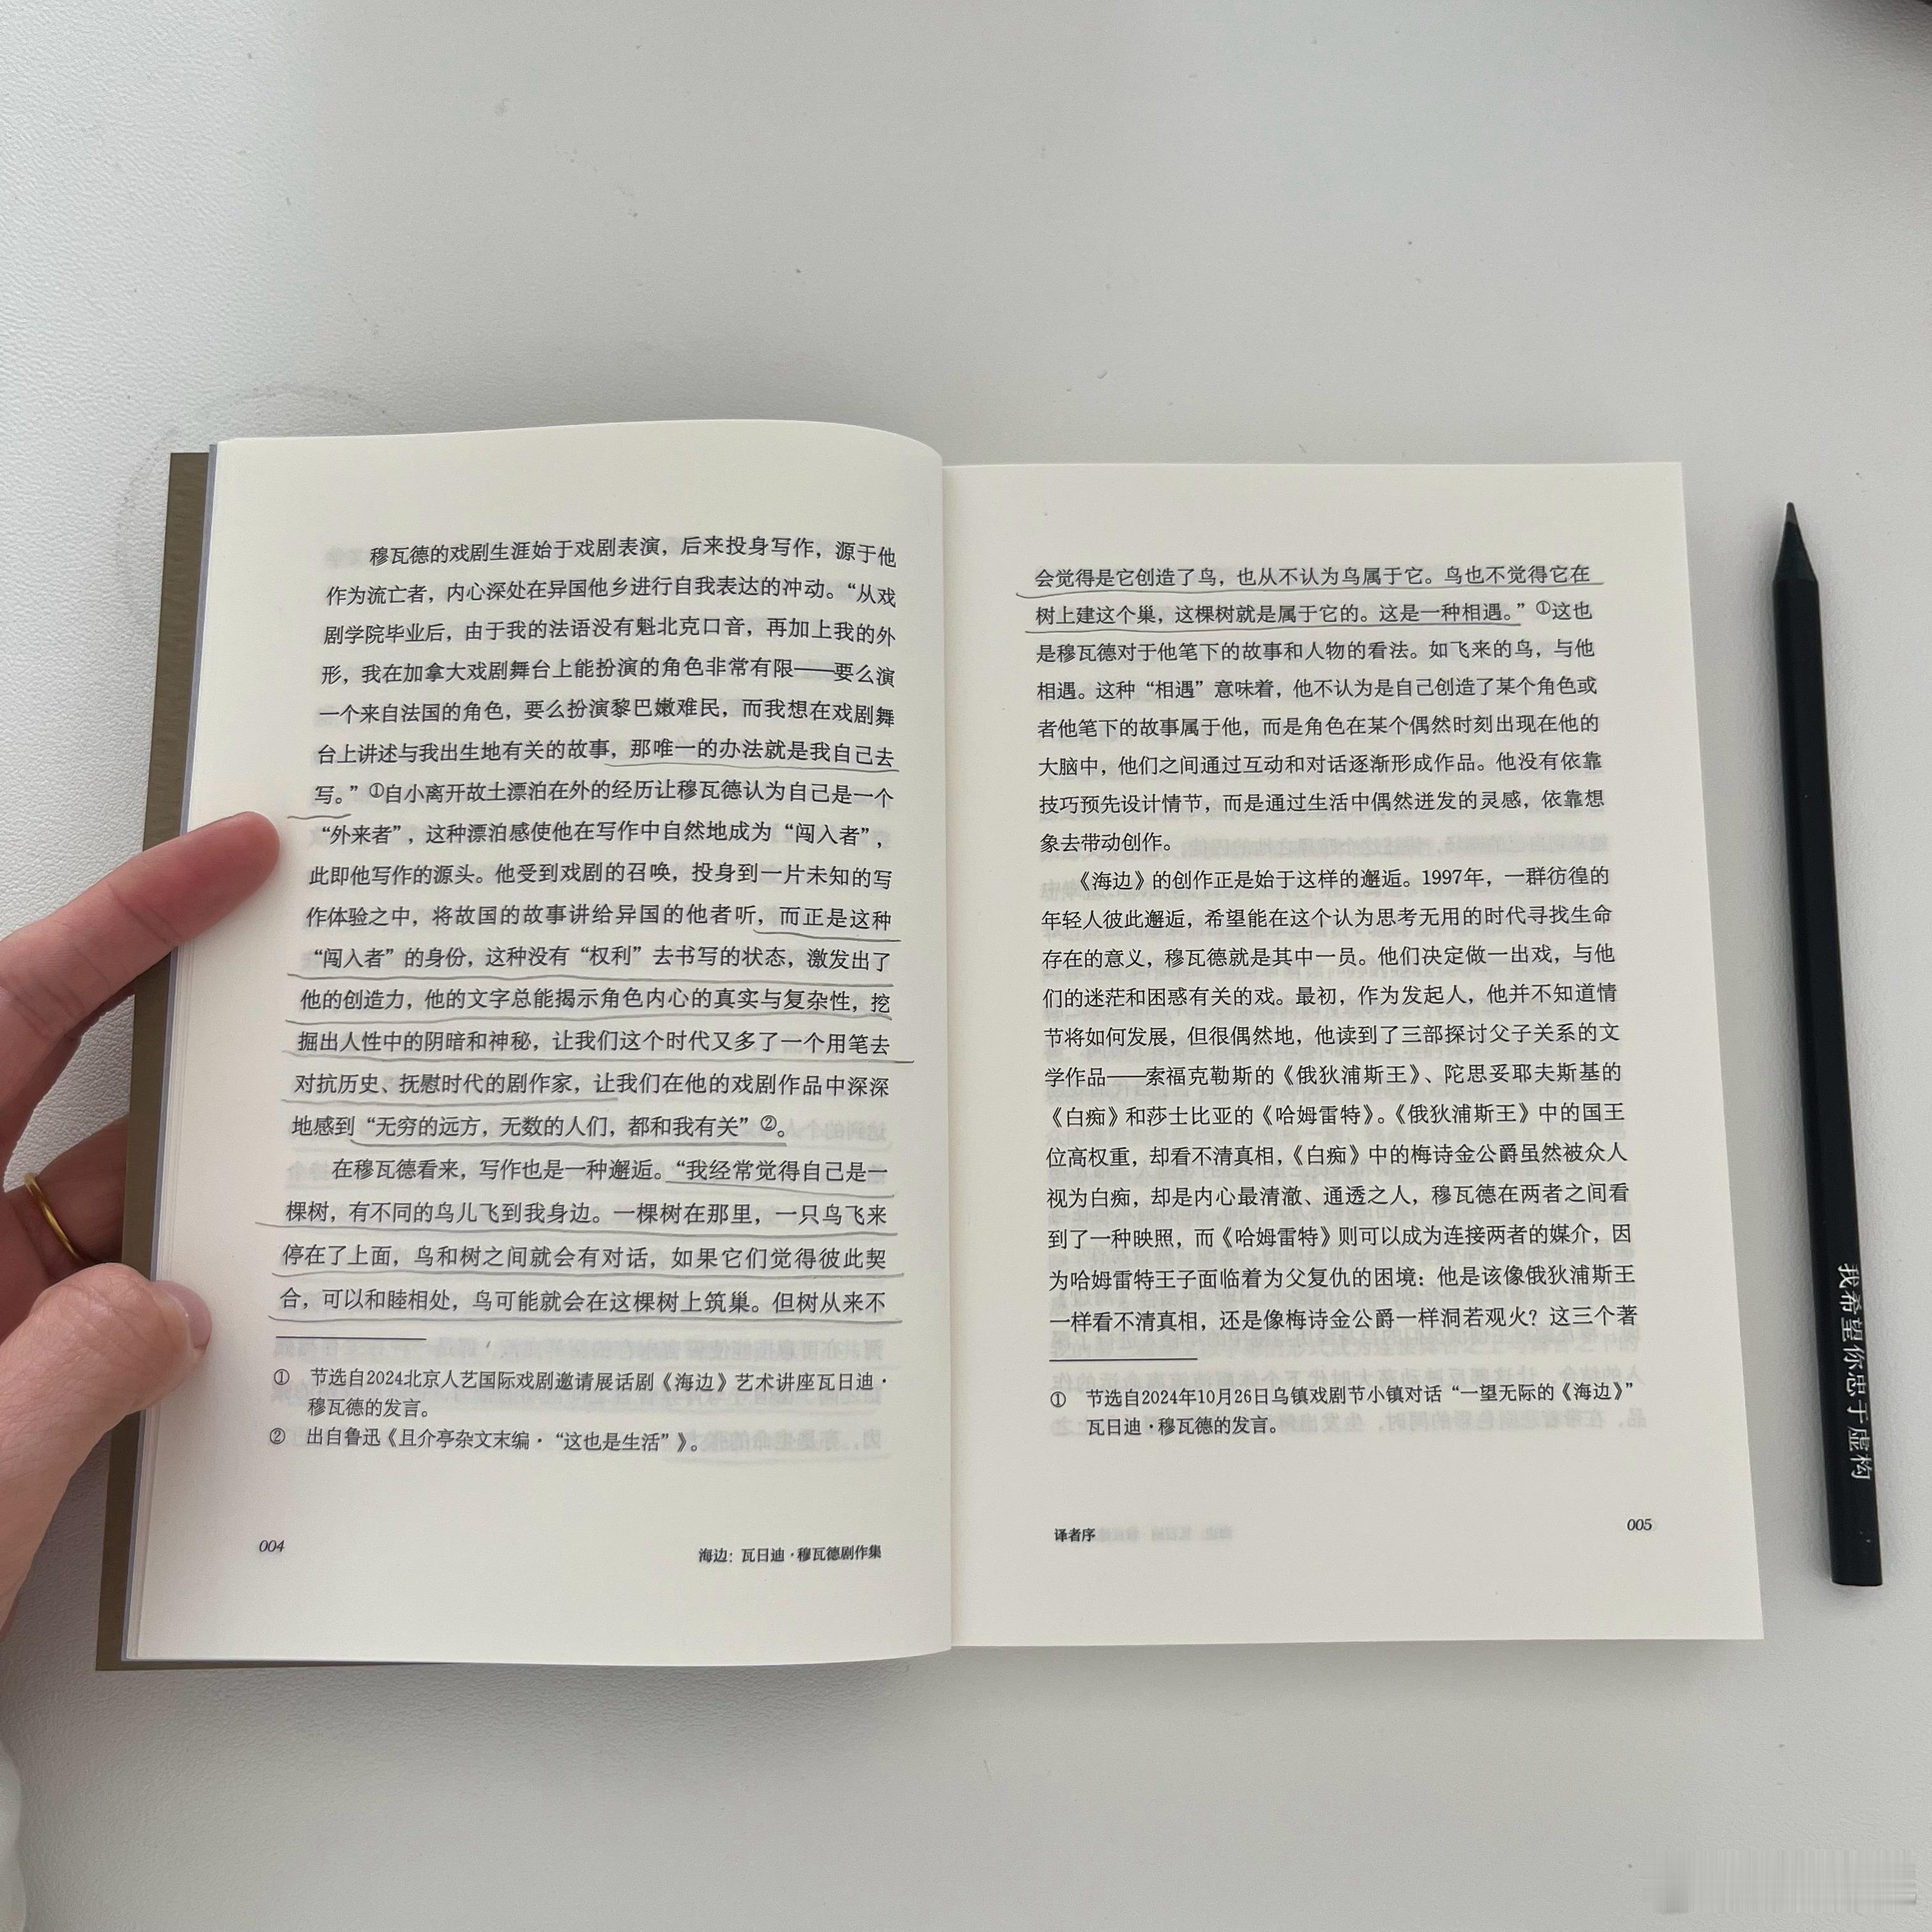 穆瓦德的戏剧生涯始于戏剧表演，后来投身写作，源于他
作为流亡者，内心深处在异国他乡进行自我表达的冲动。“从戏
剧学院毕业后，由于我的法语没有魁北克口音，再加上我的外
形，我在加拿大戏剧舞台上能扮演的角色非常有限——要么演
一个来自法国的角色，要么扮演黎巴嫩难民，而我想在戏剧舞
台上讲述与我出生地有关的故事，那唯一的办法就是我自己去
写。”①自小离开故土漂泊在外的经历让穆瓦德认为自己是一个
“外来者”，这种漂泊感使他在写作中自然地成为“闯入者”，
此即他写作的源头。他受到戏剧的召唤，投身到一片未知的写
作体验之中，将故国的故事讲给异国的他者听，而正是这种
“闯入者”的身份，这种没有“权利”去书写的状态，激发出了
他的创造力，他的文字总能揭示角色内心的真实与复杂性，挖
掘出人性中的阴暗和神秘，让我们这个时代又多了一个用笔去
对抗历史、抚慰时代的剧作家，让我们在他的戏剧作品中深深
地感到“无穷的远方，无数的人们，都和我有关”②。
在穆瓦德看来，写作也是一种邂逅。“我经常觉得自己是一
棵树，有不同的鸟儿飞到我身边。一棵树在那里，一只鸟飞来
停在了上面，鸟和树之间就会有对话，如果它们觉得彼此契
合，可以和睦相处，鸟可能就会在这棵树上筑巢。但树从来不
① 节选自2024北京人艺国际戏剧邀请展话剧《海边》艺术讲座瓦日迪·
穆瓦德的发言。
② 出自鲁迅《且介亭杂文末编·“这也是生活”》。
004
海边：瓦日迪·穆瓦德剧作集
会觉得是它创造了鸟，也从不认为鸟属于它。鸟也不觉得它在
树上建这个巢，这棵树就是属于它的。这是一种相遇。”①这也
是穆瓦德对于他笔下的故事和人物的看法。如飞来的鸟，与他
相遇。这种“相遇”意味着，他不认为是自己创造了某个角色或
者他笔下的故事属于他，而是角色在某个偶然时刻出现在他的
大脑中，他们之间通过互动和对话逐渐形成作品。他没有依靠
技巧预先设计情节，而是通过生活中偶然迸发的灵感，依靠想
象去带动创作。
《海边》的创作正是始于这样的邂逅。1997年，一群彷徨的
年轻人彼此邂逅，希望能在这个认为思考无用的时代寻找生命
存在的意义，穆瓦德就是其中一员。他们决定做一出戏，与他
们的迷茫和困惑有关的戏。最初，作为发起人，他并不知道情
节将如何发展，但很偶然地，他读到了三部探讨父子关系的文
学作品——索福克勒斯的《俄狄浦斯王》、陀思妥耶夫斯基的
《白痴》和莎士比亚的《哈姆雷特》。《俄狄浦斯王》中的国王
位高权重，却看不清真相，《白痴》中的梅诗金公爵虽然被众人
视为白痴，却是内心最清澈、通透之人，穆瓦德在两者之间看
到了一种映照，而《哈姆雷特》则可以成为连接两者的媒介，因
为哈姆雷特王子面临着为父复仇的困境：他是该像俄狄浦斯王
一样看不清真相，还是像梅诗金公爵一样洞若观火？这三个著
① 节选自2024年10月26日乌镇戏剧节小镇对话“一望无际的《海边》”
瓦日迪·穆瓦德的发言。
译者序
005
我希望你忠于虚构